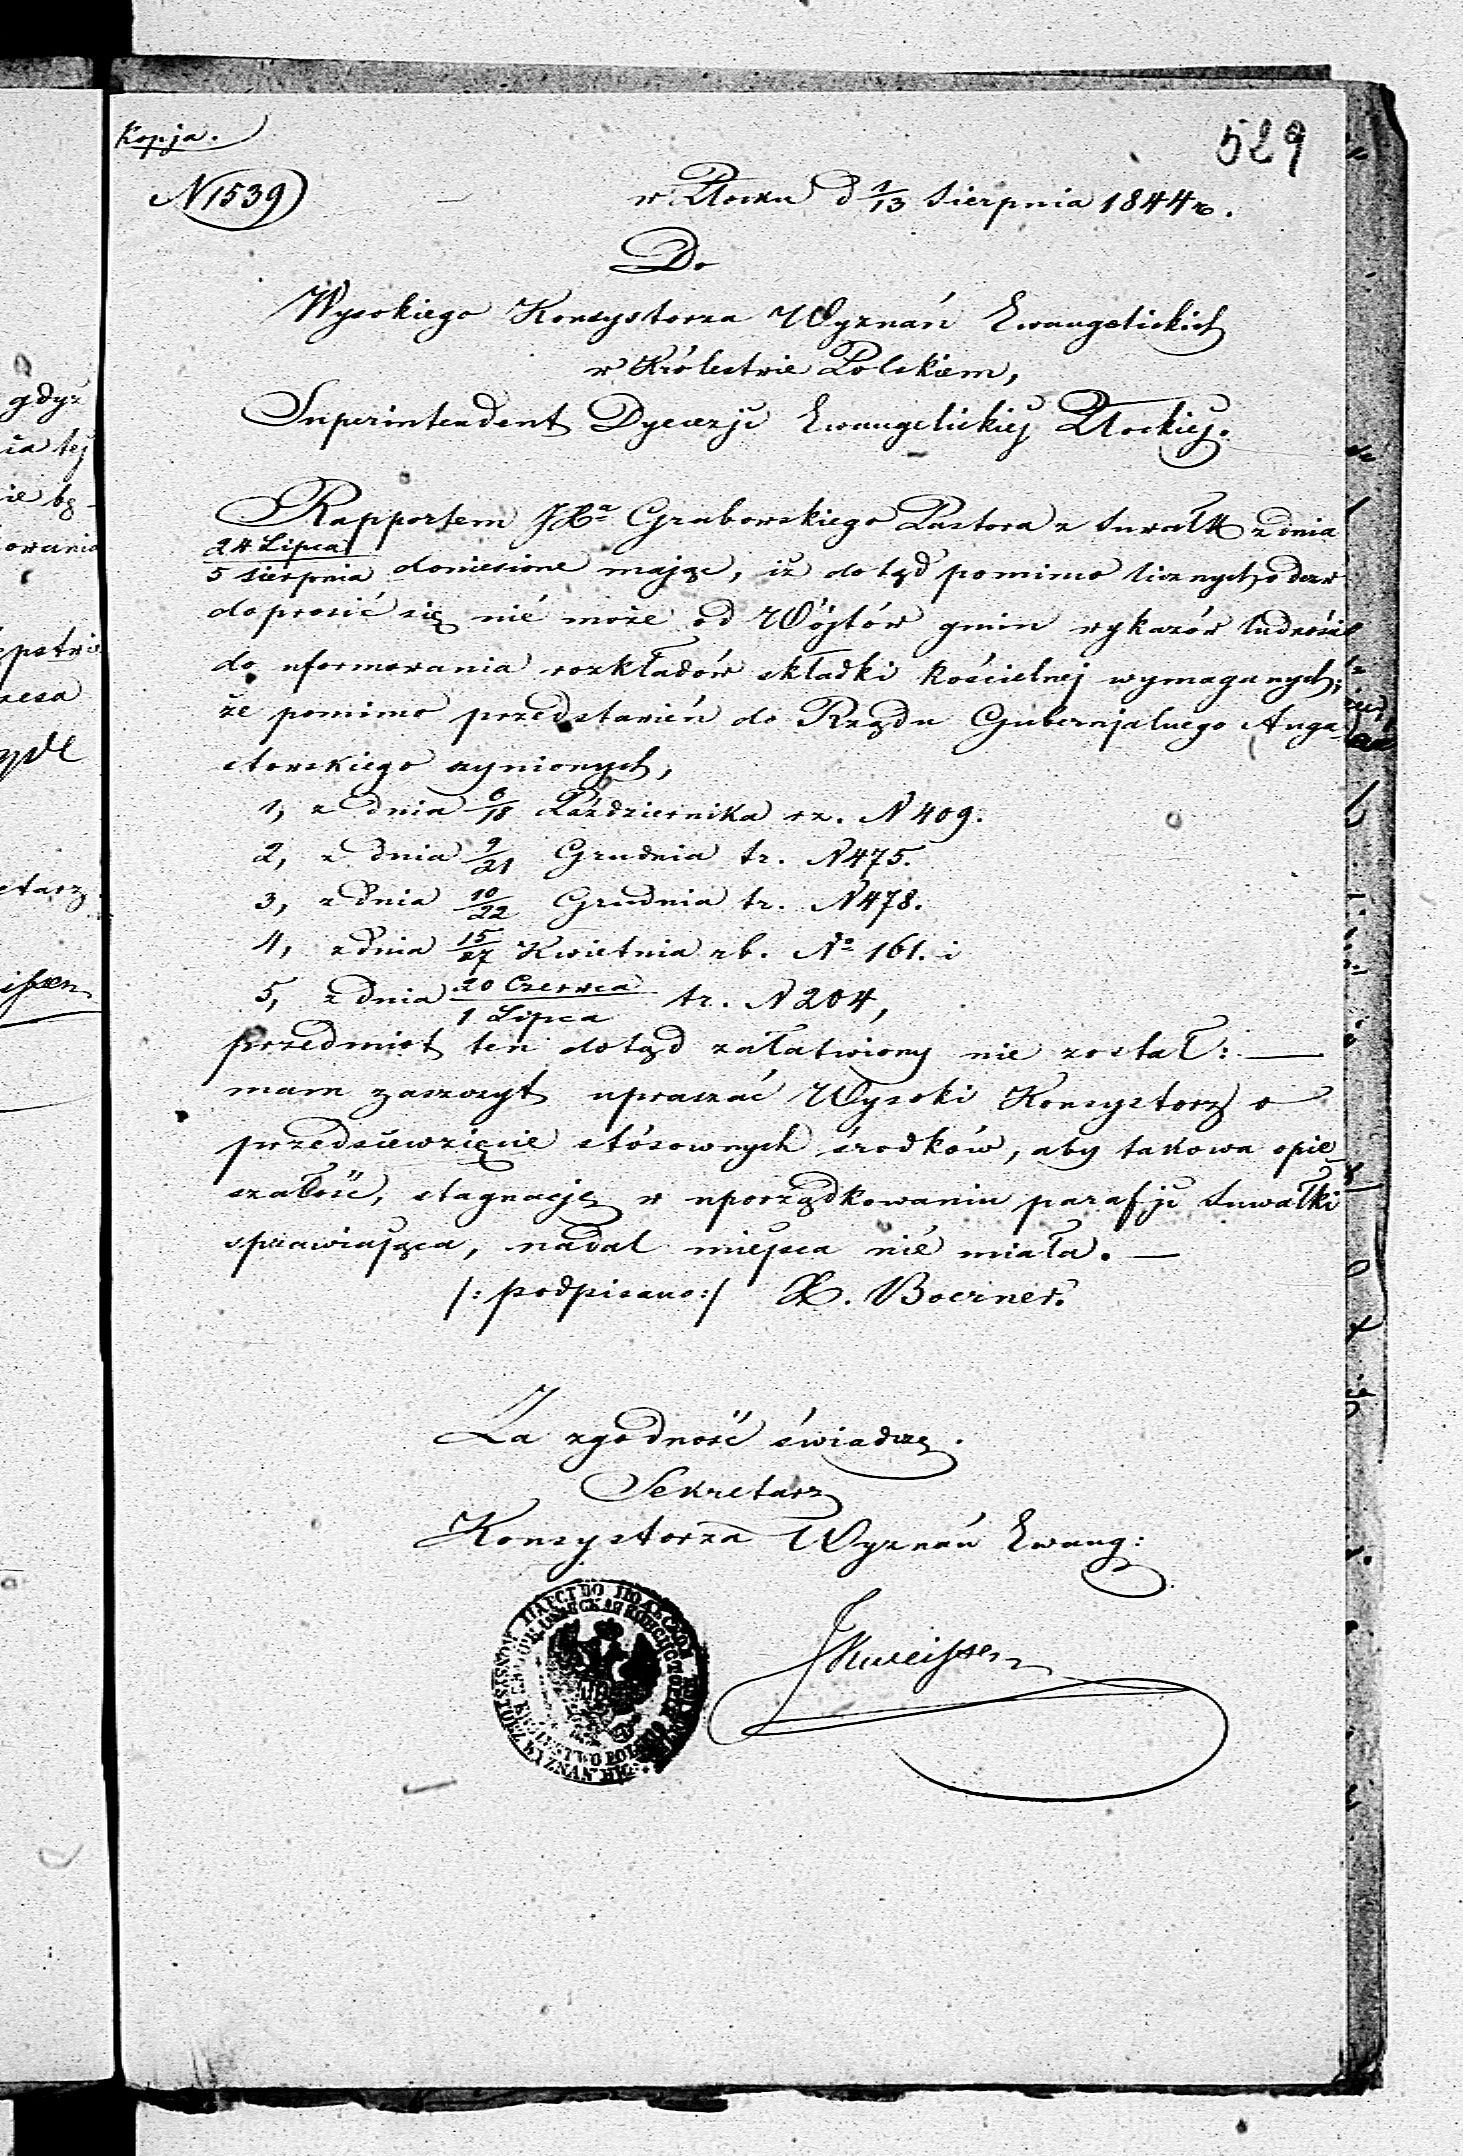 Kopja.
529
N 1539
w Płocku d 1/13 Sierpnia 1844 r.
Do
Wysokiego Konsystorza Wyznań Ewangelickich
w Królestwie Polskiem,
Superintendent Dyecezji Ewangelickiej Płockiej.
Rapportem JXa Grabowskiego Pastora z Suwałk z dnia
24 Lipca / 5 Sierpnia doniesione mając, iż dotąd pomimo licznych odezw
doprosić się nié może od Wójtów gmin wykazów ludności
do uformowania rozkładów składki kościelnej wymaganych;
że pomimo przedstawień do Rządu Gubernjalnego Augu-
stowskiego czynionych,
1, z dnia 6/18 Października rz. N 409.
2, z dnia 9/21 Grudnia tr. N 475.
3, z dnia 10/22 Grudnia tr. N 478.
4, z dnia 15/27 Kwietnia rb. No 161. i
5, z dnia 20 Czerwca / 1 Lipca tr. N 204,
przedmiot ten dotąd załatwiony nie został: —
mam zaszczyt upraszać Wysoki Konsystorz o
przedsięwzięcie stósownych środków, aby takowa opie-
szałość, stagnację w uporządkowaniu parafji Suwałki
sprawiająca, nadal miejsca nié miała. —
/: podpisano :/ X. Boerner.
Za zgodność świadczę.
Sekretarz
Konsystorza Wyznań Ewang: